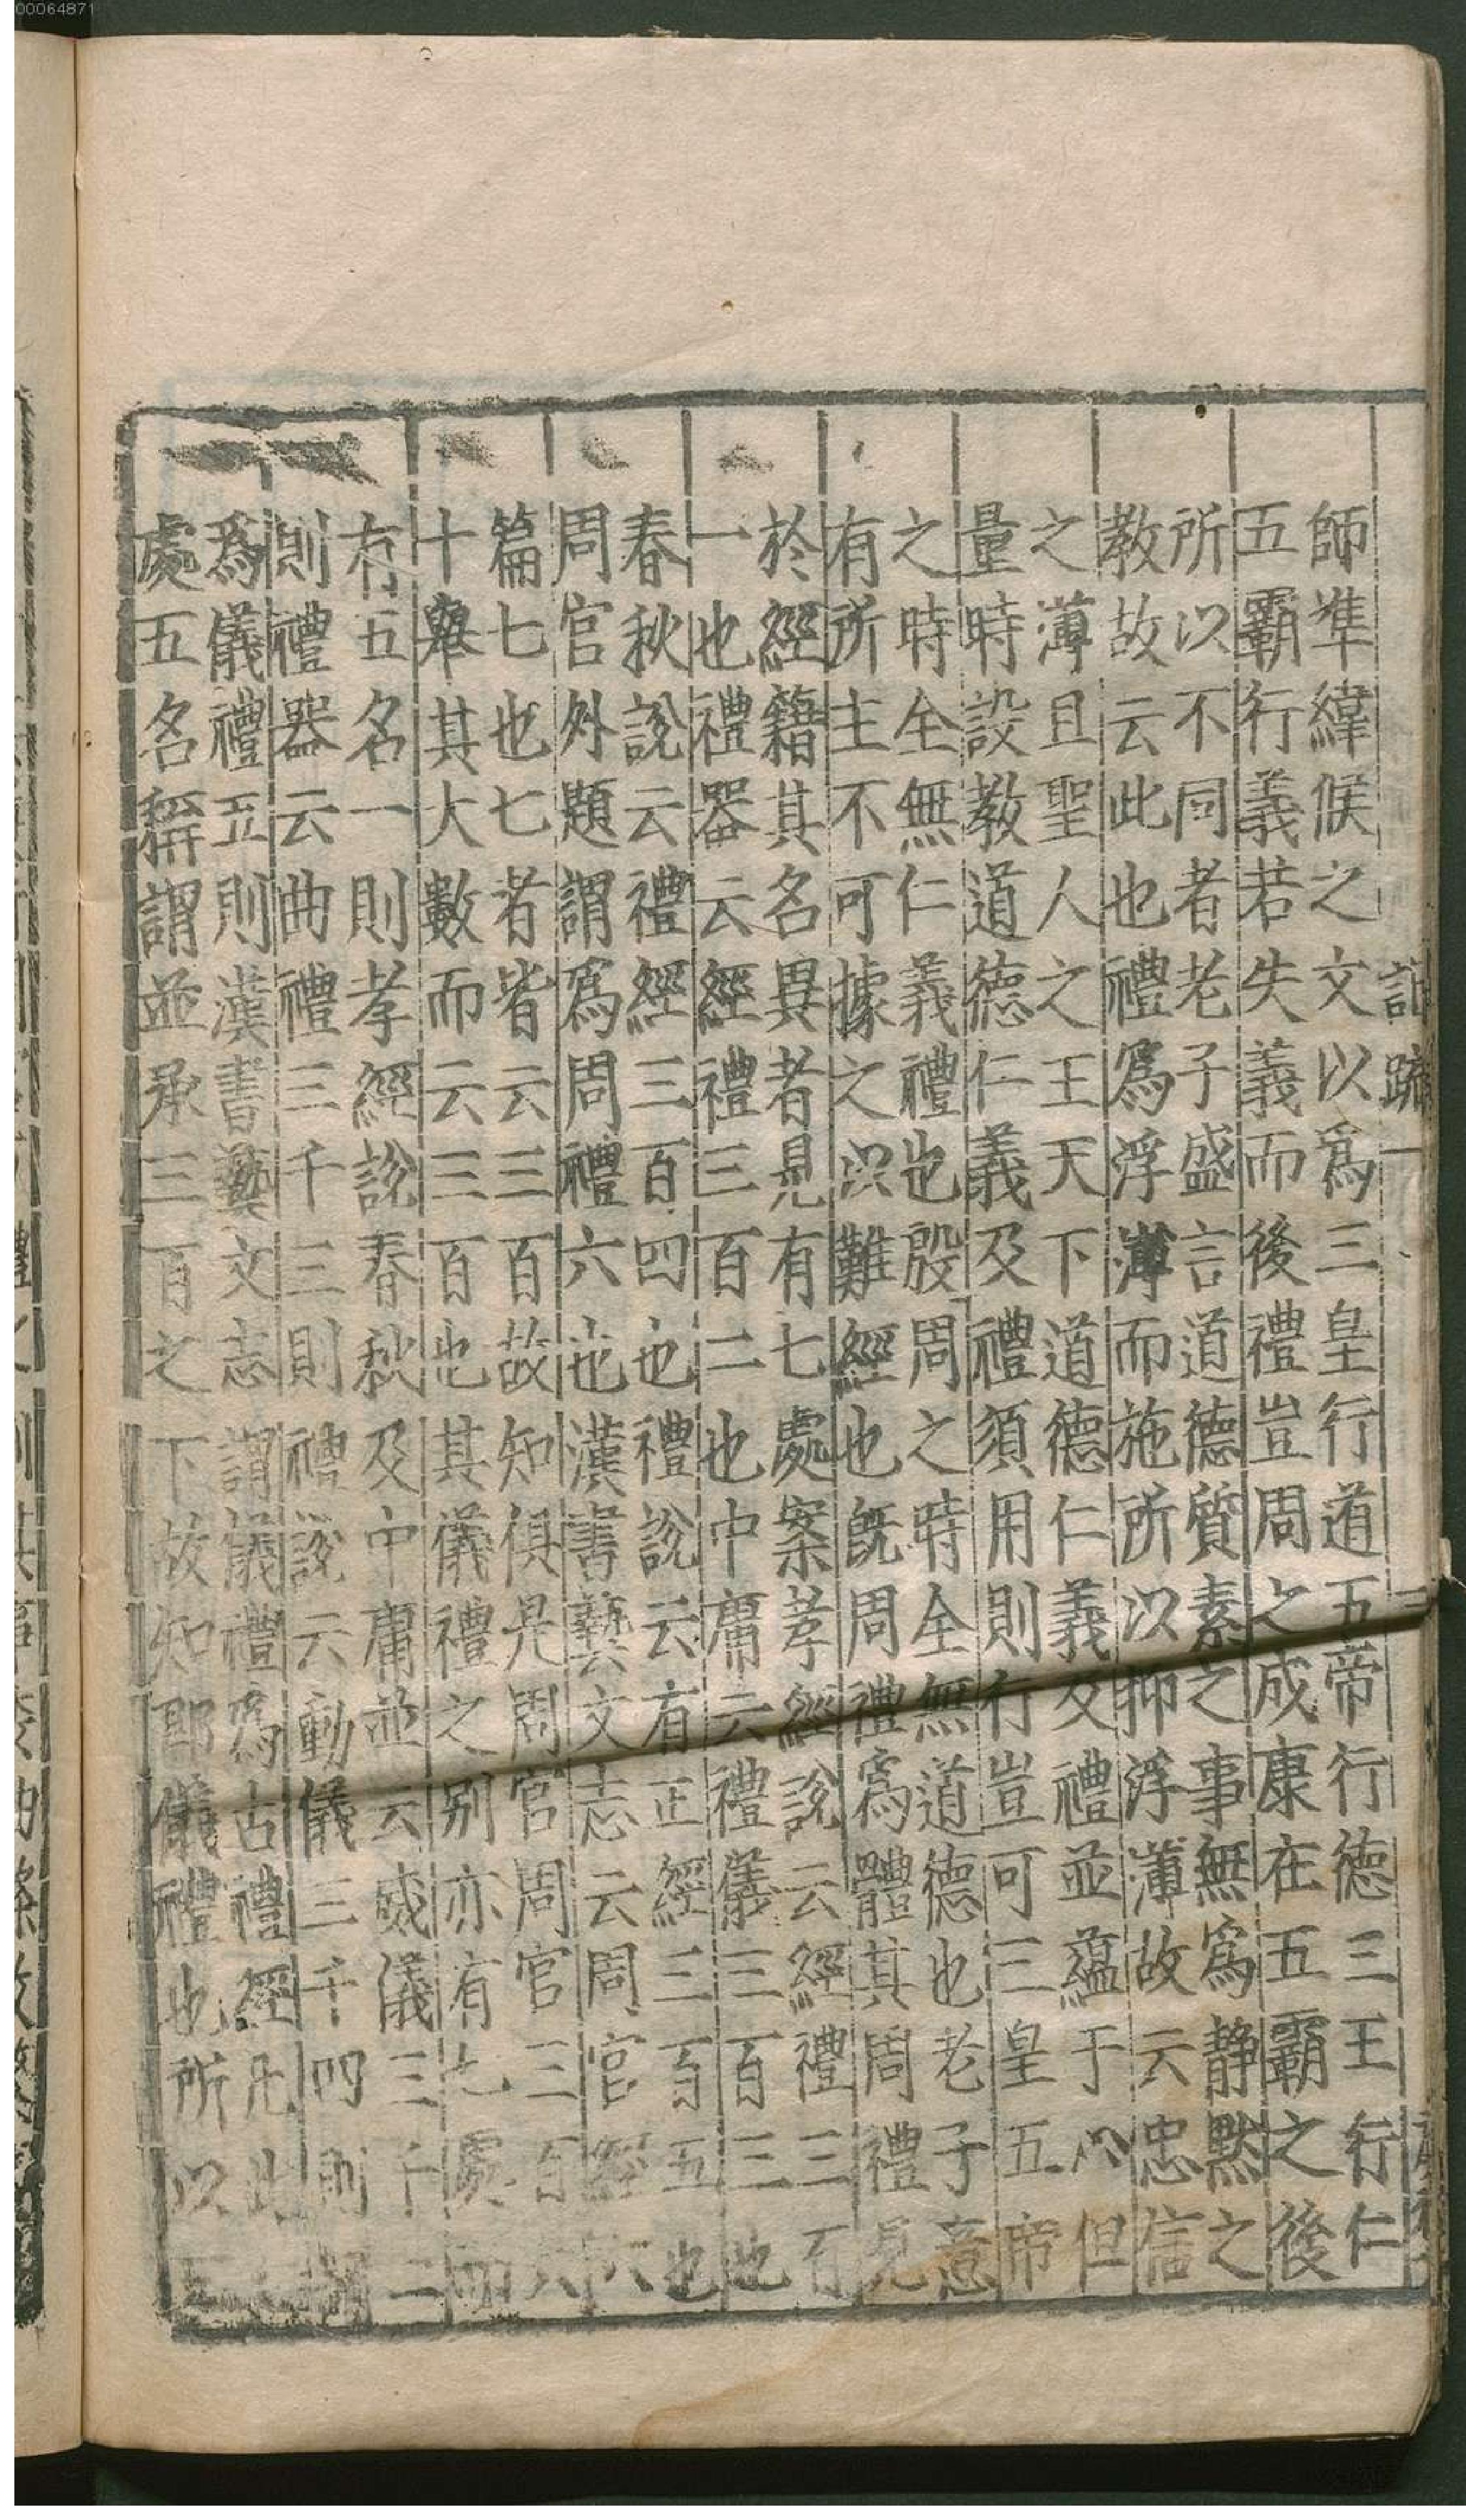 00064871
記疏一
二
師準緯候之文以爲三皇行道五帝行德三王行仁
五霸行義若失義而後禮豈周之成康在五霸之後
所以不同者老子盛言道德質素之事無爲静黙之
教故云此也禮爲浮薄而施所以抑浮薄故云忠信
之薄且聖人之王天下道德仁義及禮並蘊于心但
量時設教道德仁義及禮須用則行豈可三皇五帝
之時全無仁義禮也殷周之時全無道德也老子意
有所主不可據之以難經也既周禮爲體其周禮見
於經籍其名異者見有七處案孝經説云經禮三百
一也禮器云經禮三百二也中庸云禮儀三百三也
春秋説云禮經三百四也禮説云有正經三百五也
周官外題謂爲周禮六也漢書藝文志云周官經六
篇七也七者皆云三百故知俱是周官周官三百六
十舉其大數而云三百也其儀禮之别亦有七處而
有五名一則孝經説春秋及中庸並云威儀三千二
則禮器云曲禮三千三則禮説云動儀三千四則謂
爲儀禮五則漢書藝文志謂儀禮爲古禮經凡此
處五名稱謂並承三百之下故知即儀禮也所以三